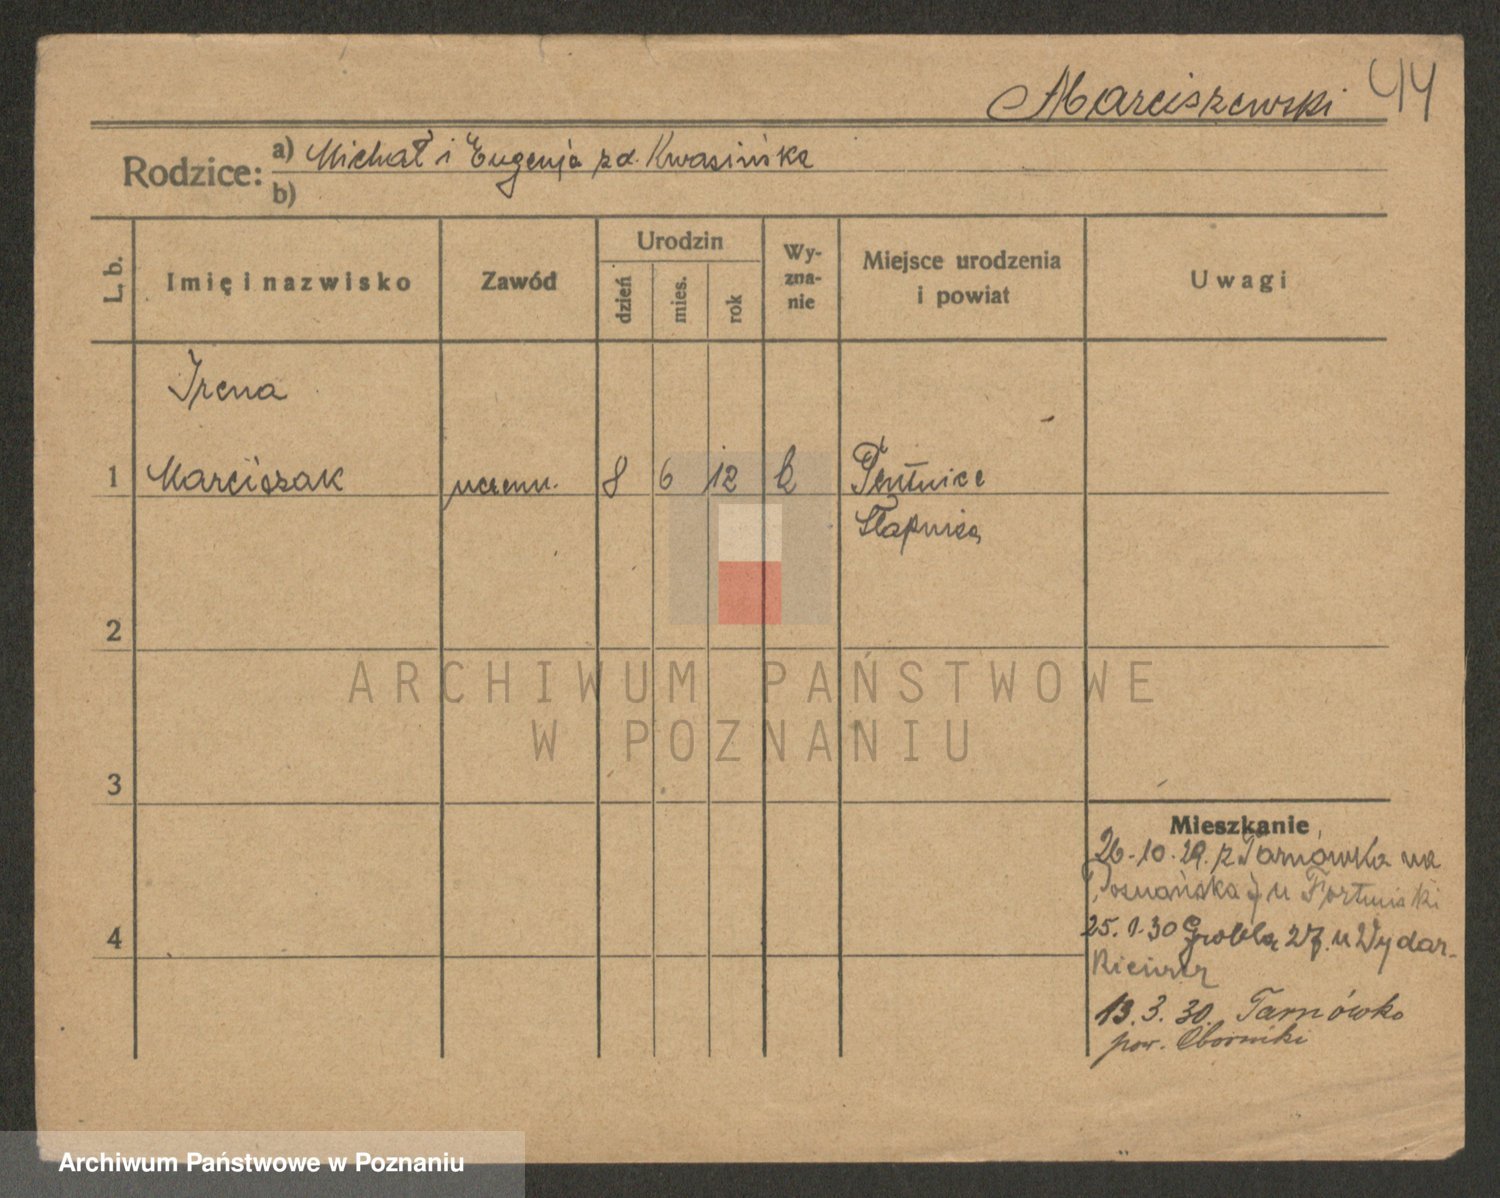 Marciszewski 44
Rodzice:
a) Michał i Eugenja zd. Kwasińska
b)
L. b.
Imię i nazwisko
Zawód
Urodzin
dzień
mies.
rok
Wy-
zna-
nie
Miejsce urodzenia
i powiat
Uwagi
Irena
1 Marciszak uczenn. 8 6 12 k
2
3
4
Mieszkanie
26.10.29. z Tarnówka na
Poznańska u
25.1.30 Grobla 27. u Wydar-
kiewicz
13.3.30. Tarnówko
pow. Oborniki
ARCHIWUM PAŃSTWOWE
W POZNANIU
Archiwum Państwowe w Poznaniu